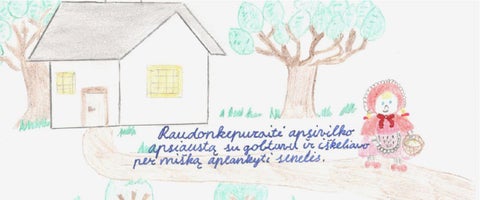 Raudonkepuraitė apsivilko
apsiaustą su gobtuvu ir iškeliavo
per mišką aplankyti senelės.